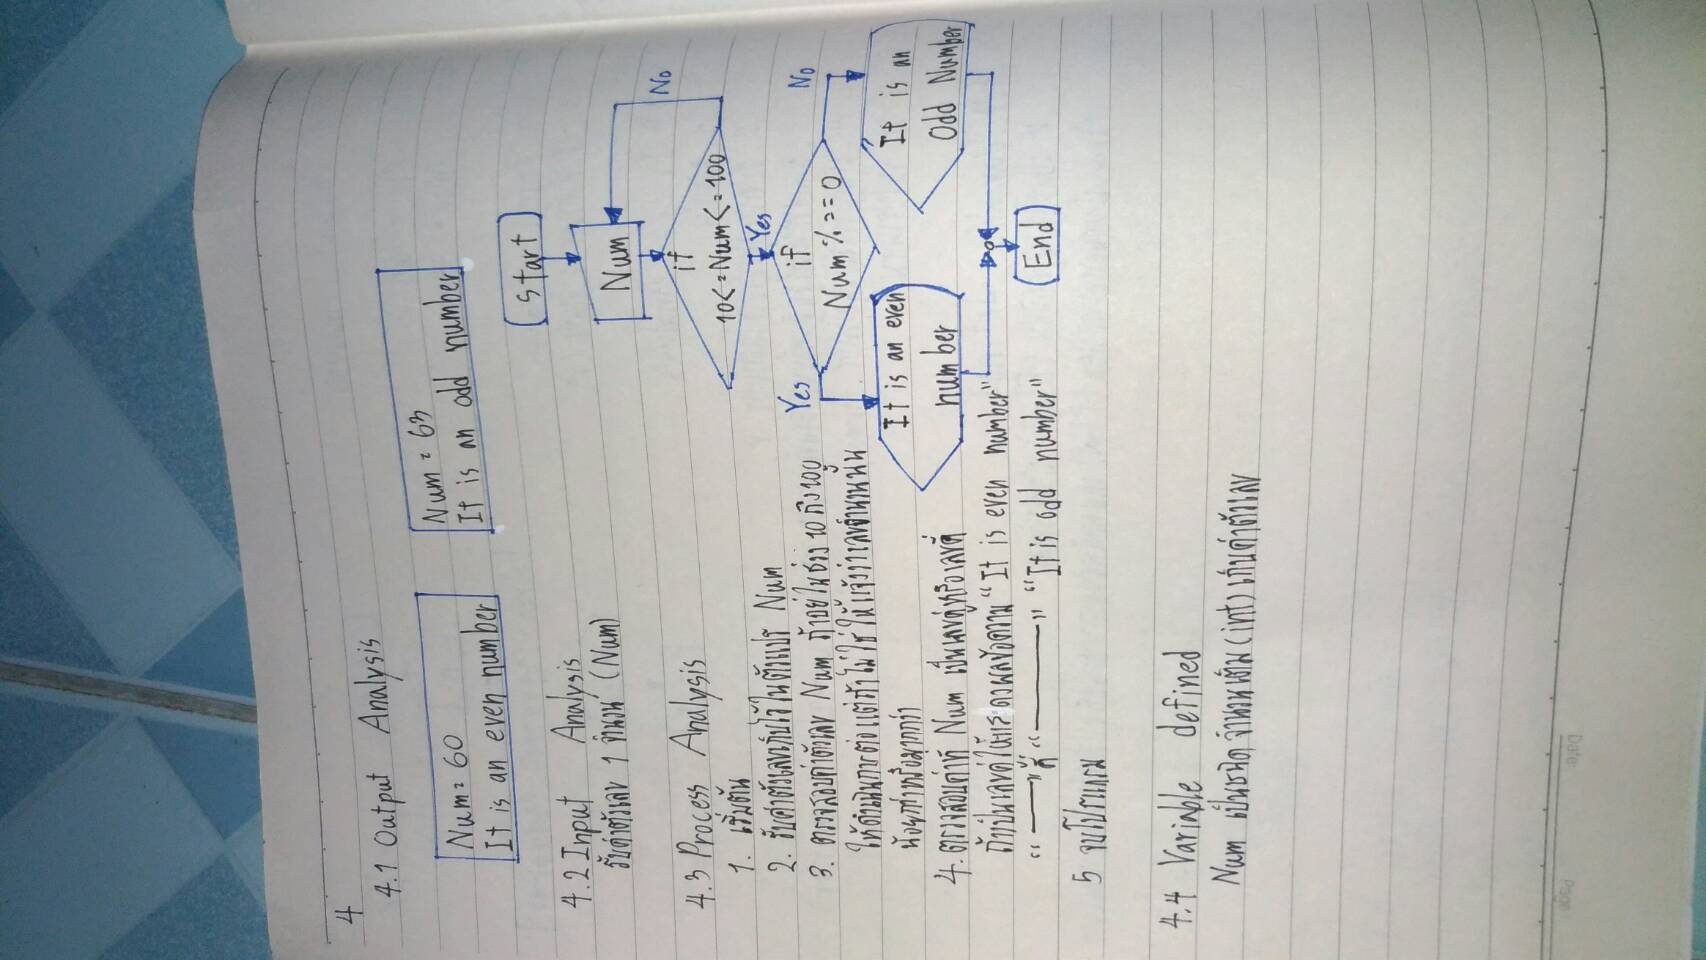 4
4.1 Output Analysis
Num = 60
It is an even number
Num = 63
It is an odd number
4.2 Input Analysis
รับค่าตัวเลข 1 จำนวน (Num)
4.3 Process Analysis
1. เริ่มต้น
2. รับค่าตัวเลขเก็บไว้ในตัวแปร Num
3. ตรวจสอบค่าตัวเลข Num ถ้าอยู่ในช่วง 10 ถึง 100
ให้ดำเนินการต่อ แต่ถ้าไม่ใช่ ให้แจ้งว่าเลขจำนวนนั้น
น้อยกว่าหรือมากกว่า
4. ตรวจสอบค่าที่ Num เป็นเลขคู่หรือเลขคี่
ถ้าเป็นเลขคู่ให้แสดงผลข้อความ "It is even number"
" ——— คี่ " ——— " "It is odd number"
5 จบโปรแกรม
4.4 Varible defined
Num เป็นชนิด จำนวนเต็ม (int) เก็บค่าตัวเลข
Start
Num
if
10<=Num<=100
No
Yes
if
Num%2==0
Yes
No
It is an even
number
It is an
Odd Number
End
Date:
Page